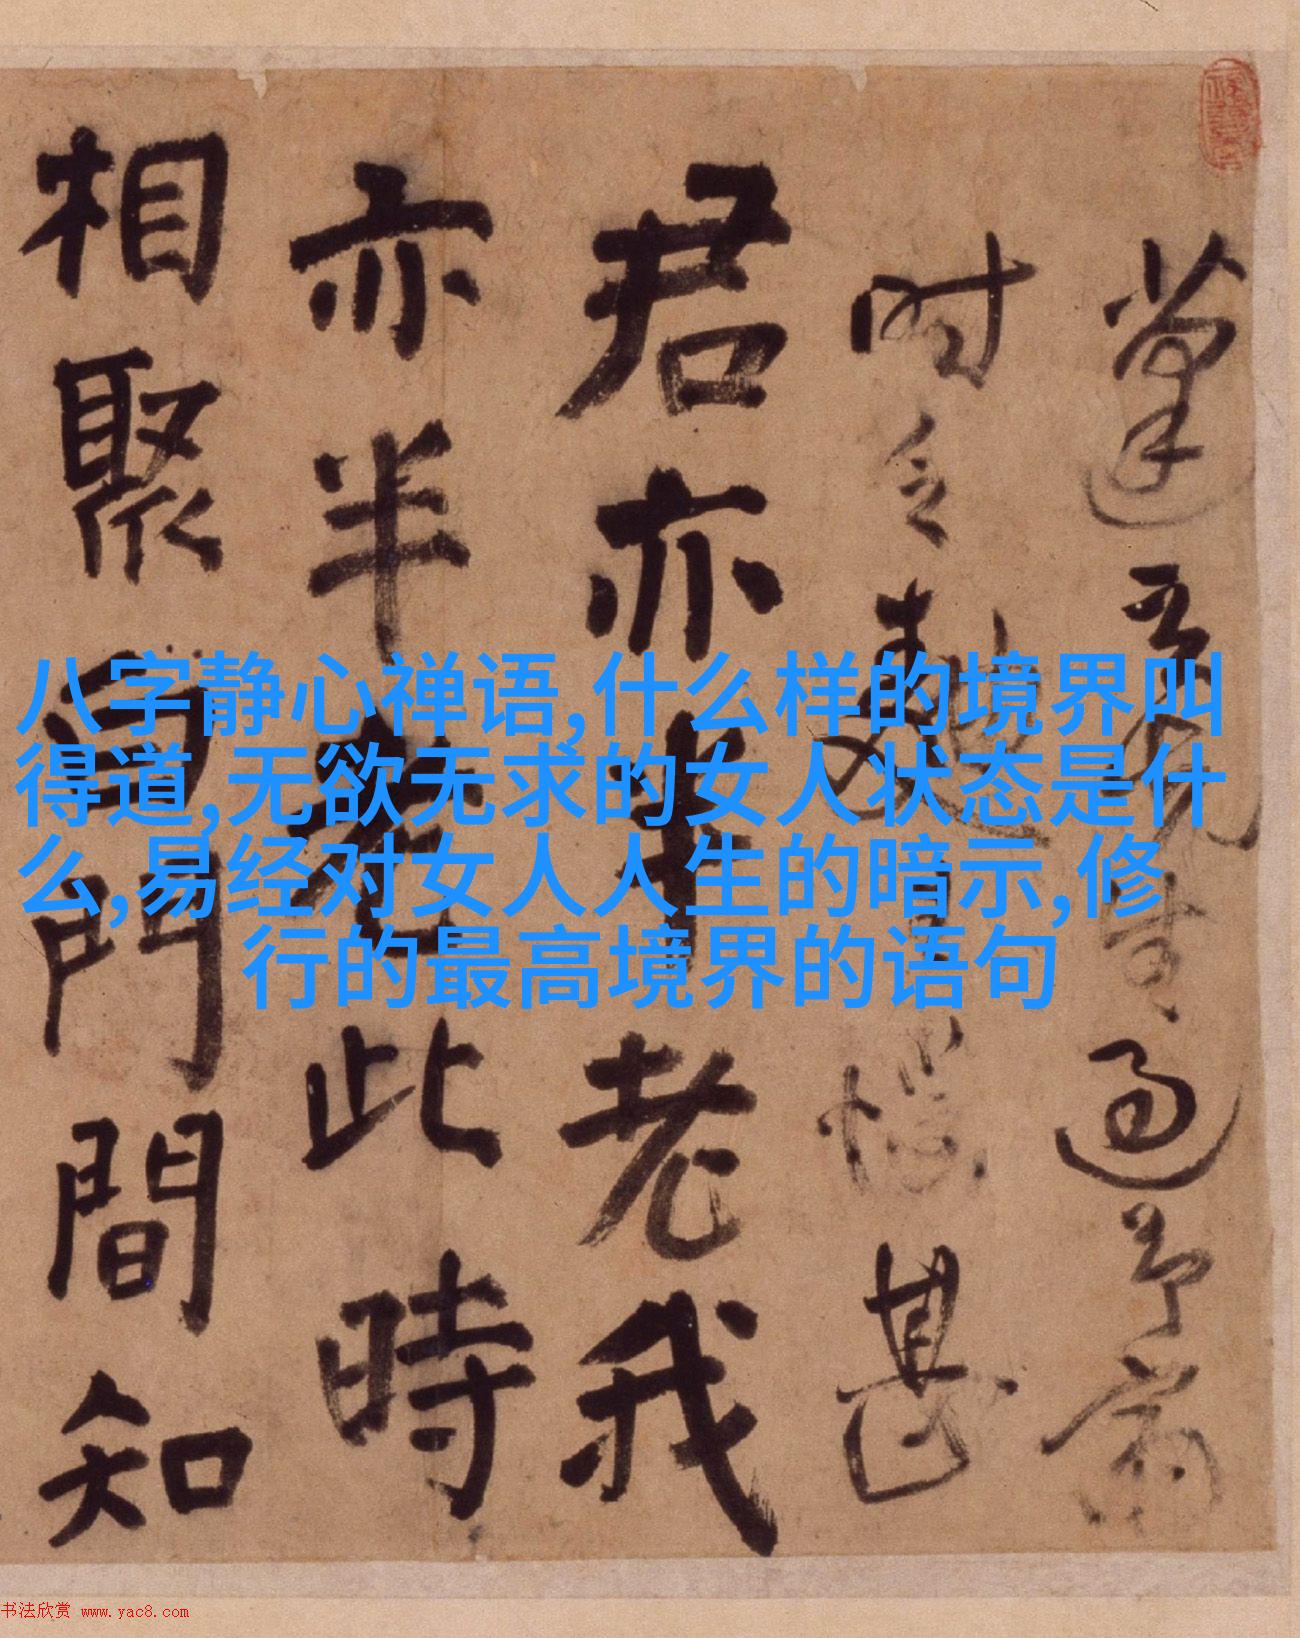 过予
甚
君亦半老我
亦半老此時
相聚白門間知
八字静心禅语,什么样的境界叫
得道,无欲无求的女人状态是什
么,易经对女人人生的暗示,修
行的最高境界的语句
书法欣赏 www.yac8.com